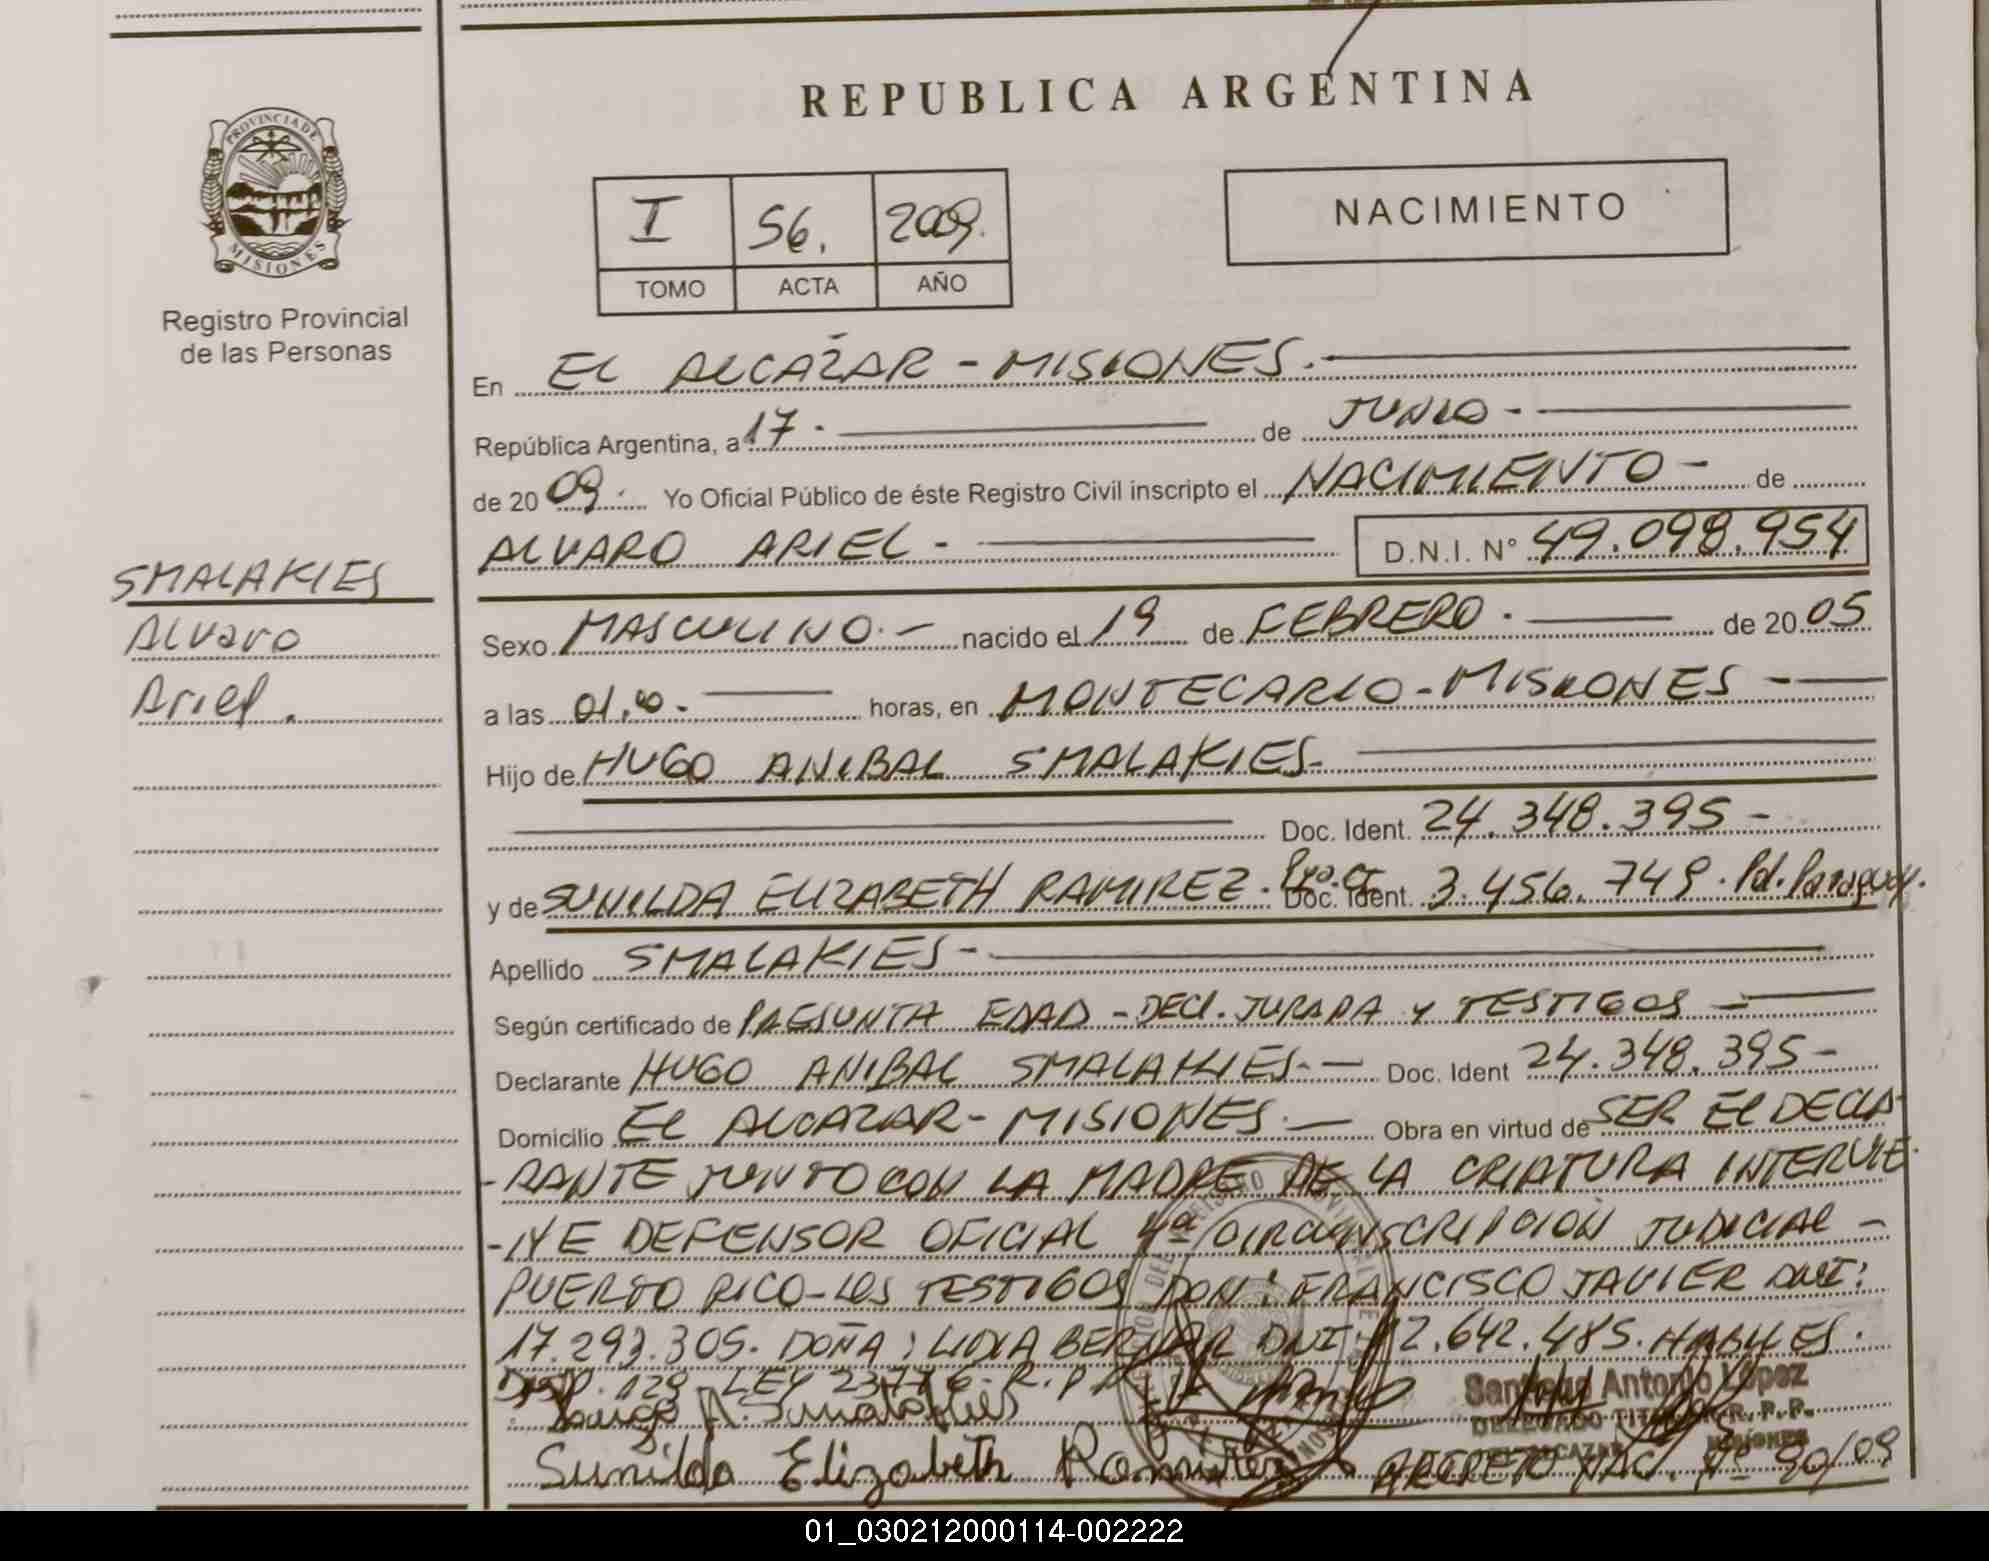 REPUBLICA ARGENTINA
PROVINCIA DE MISIONES
Registro Provincial
de las Personas
I 56. 2009.
TOMO ACTA AÑO
NACIMIENTO
En EL ALCAZAR - MISIONES.
República Argentina, a 17. de JUNIO -
de 20 09. Yo Oficial Público de éste Registro Civil inscripto el NACIMIENTO - de
ALVARO ARIEL - D.N.I. N° 49.098.954
SMALAKIES
Alvaro
Ariel.
Sexo MASCULINO. - nacido el 19 de FEBRERO. de 20 05
a las 01,00. horas, en MONTECARLO - MISIONES -
Hijo de HUGO ANIBAL SMALAKIES-
Doc. Ident. 24.348.395 -
y de SUNILDA ELIZABETH RAMIREZ. Doc. Ident. 3.456.749. Pd. Paraguay.
Apellido SMALAKIES -
Según certificado de PRESUNTA EDAD - DECL. JURADA Y TESTIGOS -
Declarante HUGO ANIBAL SMALAKIES. - Doc. Ident 24.348.395 -
Domicilio EL ALCAZAR - MISIONES. - Obra en virtud de SER EL DECLA-
-RANTE JUNTO CON LA MADRE DE LA CRIATURA INTERVIE-
-NE DEFENSOR OFICIAL 4ª CIRCUNSCRIPCION JUDICIAL -
PUERTO RICO - LOS TESTIGOS DON: FRANCISCO JAVIER DNI:
17.293.305. DOÑA: LIDIA DNI 12.642.485. HABILES.
DISP. 129 LEY R.P.P.
Hugo A. Smalakies
Santiago Antonio López
DELEGADO TITULAR R.P.P.
EL ALCAZAR MISIONES
Sunilda Elizabeth Ramirez DECRETO NAC. Nº 90/09
01_030212000114-002222